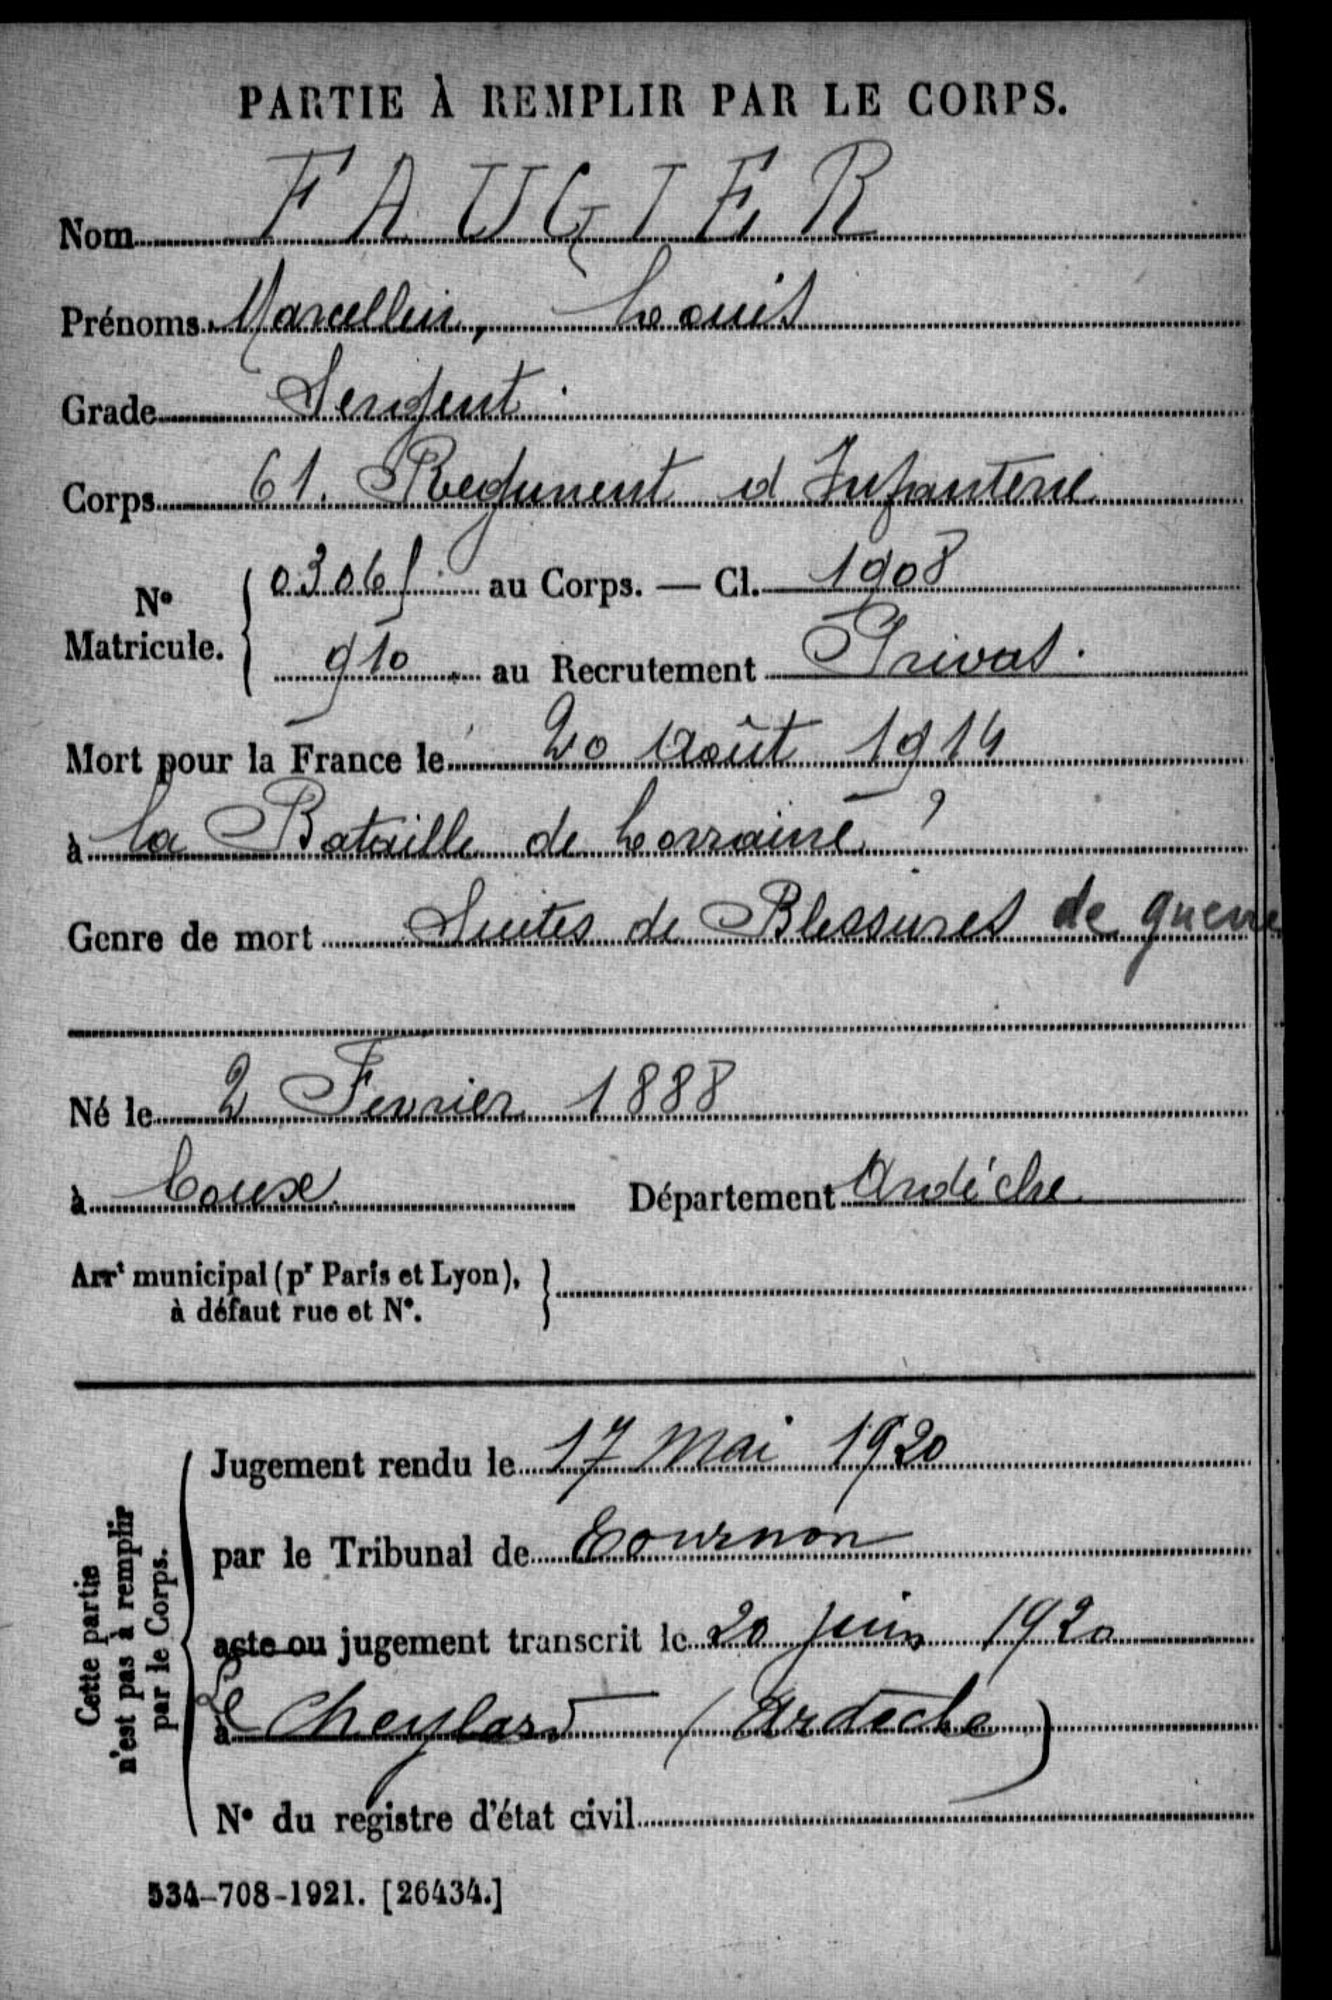 PARTIE À REMPLIR PAR LE CORPS.
Nom FAUGIER
Prénoms Marcellin, Louis
Grade Sergent
Corps 61. Regiment d Infanterie
N° Matricule. { 0306 au Corps. — Cl. 1908
910 au Recrutement Privas.
Mort pour la France le 20 Août 1914
à la Bataille de Lorraine ?
Genre de mort Suites de Blessures de guerre
Né le 2 Fevrier 1888
à Coux Département Ardéche
Arrt municipal (pr Paris et Lyon), }
à défaut rue et N°.
Cette partie
n'est pas à remplir
par le Corps.
Jugement rendu le 17 Mai 1920
par le Tribunal de Tournon
acte ou jugement transcrit le 20 juin 1920
à Le Cheylard (Ardèche)
N° du registre d'état civil
534-708-1921. [26434.]